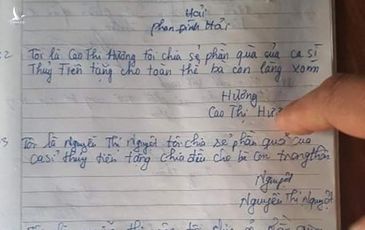 Hải
Phan Đình Hải
2 Tôi là Cao Thị Hương tôi chia sẻ phần quà của ca sĩ
Thủy Tiên tặng cho toàn thể bà con làng xóm
Hương
Cao Thị Hươ
3 Tôi là Nguyễn Thị Nguyệt tôi chia sẻ phần quà của
ca sĩ thủy tiên tặng chia đều cho bà con trong thôn
Nguyệt
Nguyễn Thị Nguyệt